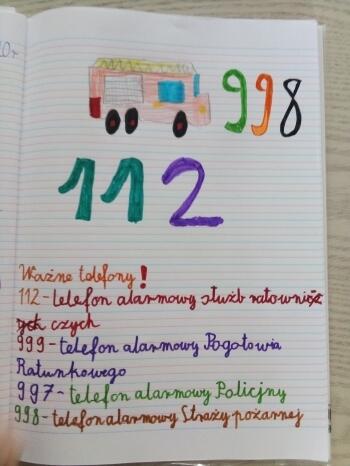 998
112
Ważne telefony!
112 - telefon alarmowy służb ratowni
czych
999 - telefon alarmowy Pogotowia
Ratunkowego
997 - telefon alarmowy Policjny
998 - telefon alarmowy Straży pożarnej